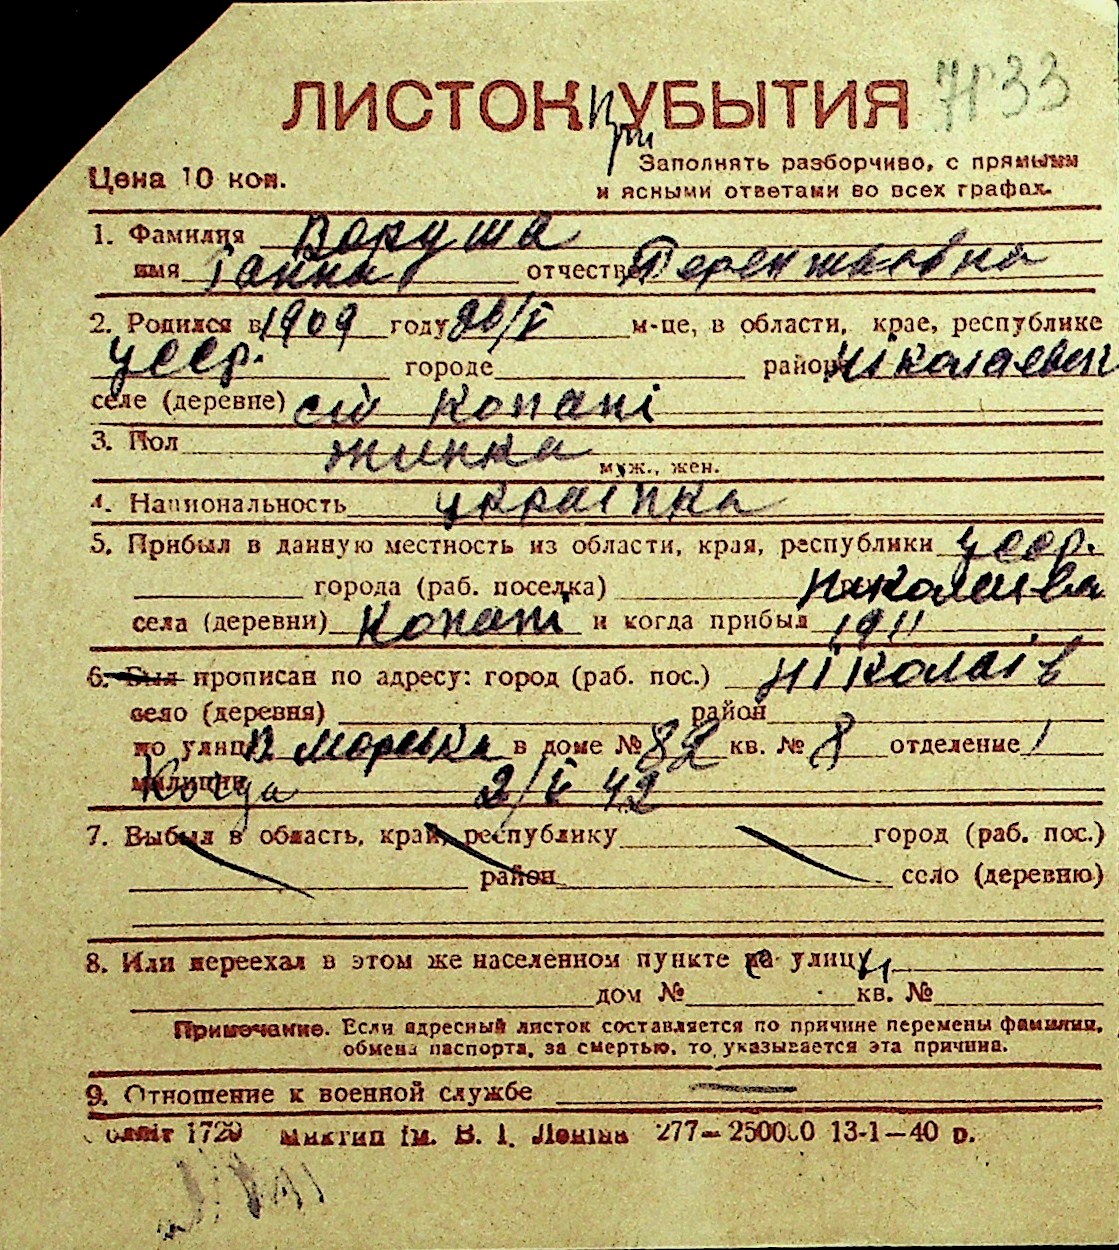 ЛИСТОК УБЫТИЯ 7133
При
Цена 10 коп.
Заполнять разборчиво, с прямыми
и ясными ответами во всех графах.
1. Фамилия Воруша
имя Ганна отчество Терентьевна
2. Родился в 1909 году 26/V м-це, в области, крае, республике
УССР. городе район Ніколаевск
селе (деревне) сіл Копані
3. Пол жинка
муж., жен.
4. Национальность украінка
5. Прибыл в данную местность из области, края, республики УССР.
города (раб. поселка) Николаева
села (деревни) Копані и когда прибыл 1911
6. Был прописан по адресу: город (раб. пос.) Ніколаів
село (деревня) район
по улице В Морська в доме № 82 кв. № 8 отделение 1
милиции Когда 2/V 42
7. Выбыл в область, край, республику город (раб. пос.)
район село (деревню)
8. Или переехал в этом же населенном пункте на улицу
дом № кв. №
Примечание. Если адресный листок составляется по причине перемены фамилии,
обмена паспорта, за смертью, то указывается эта причина.
9. Отношение к военной службе
1720 ім. В. І. Леніна 277—250000 13-1—40 р.